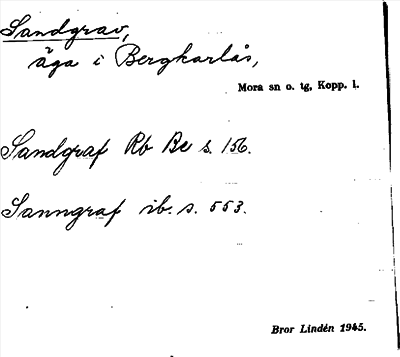 Sandgrav,
äga i Bergkarlås,
Mora sn o. tg, Kopp. l.
Sandgraf Rb Be s. 156.
Sanngraf ib. s. 553.
Bror Lindén 1945.